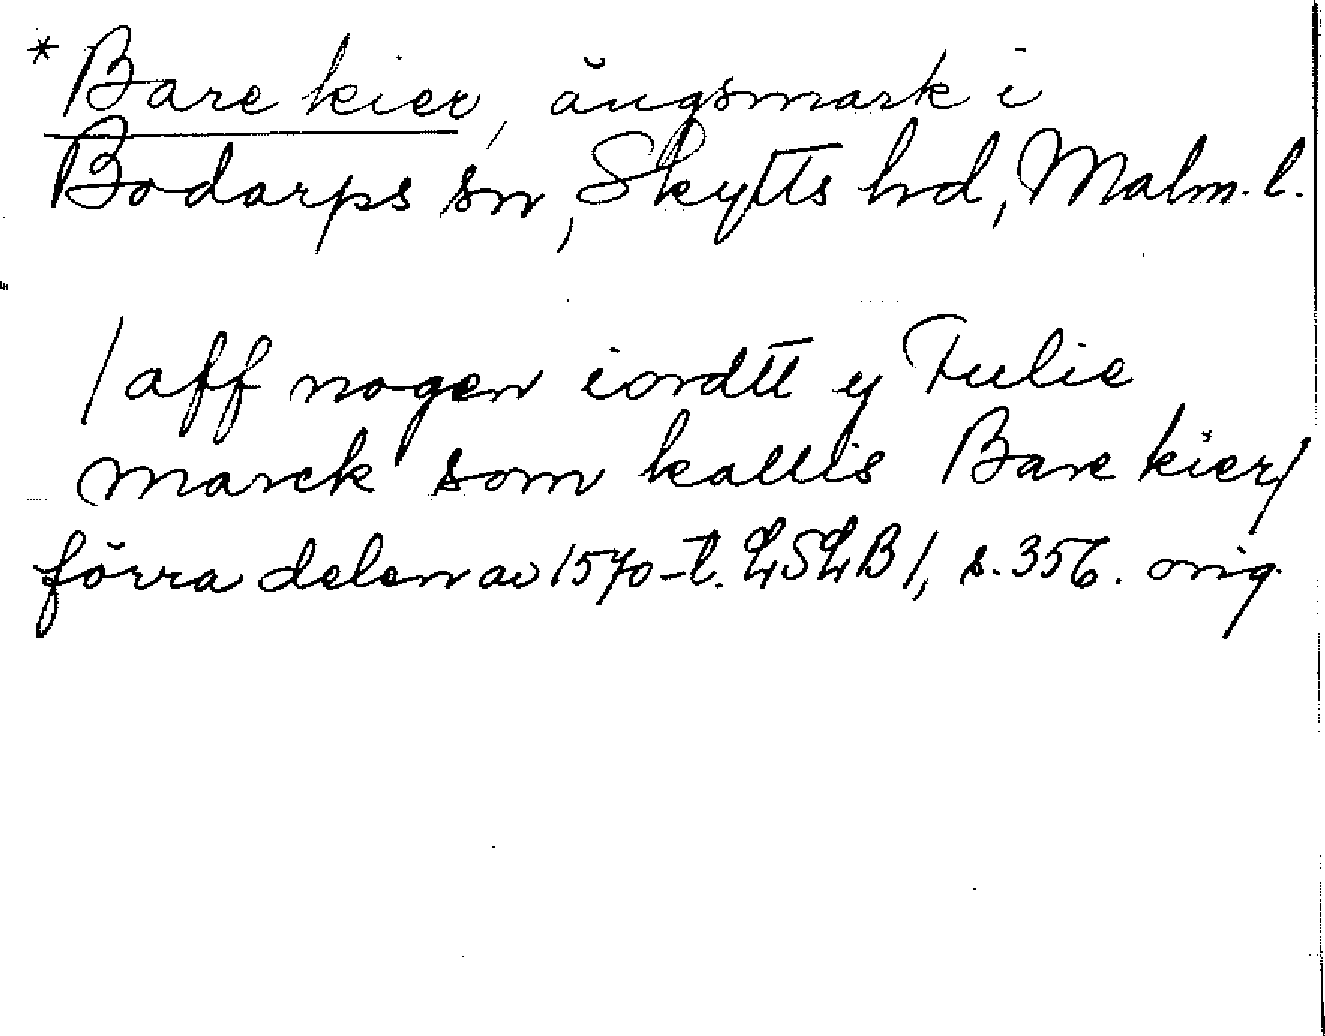 * Bare kier, ängsmark i
Bodarps sn, Skytts hd, Malm. l.
/ aff nogen iordtt y Fulie
marck som kallis Bare kier/
förra delen av 1570-t. LSLB 1, s. 356. orig.